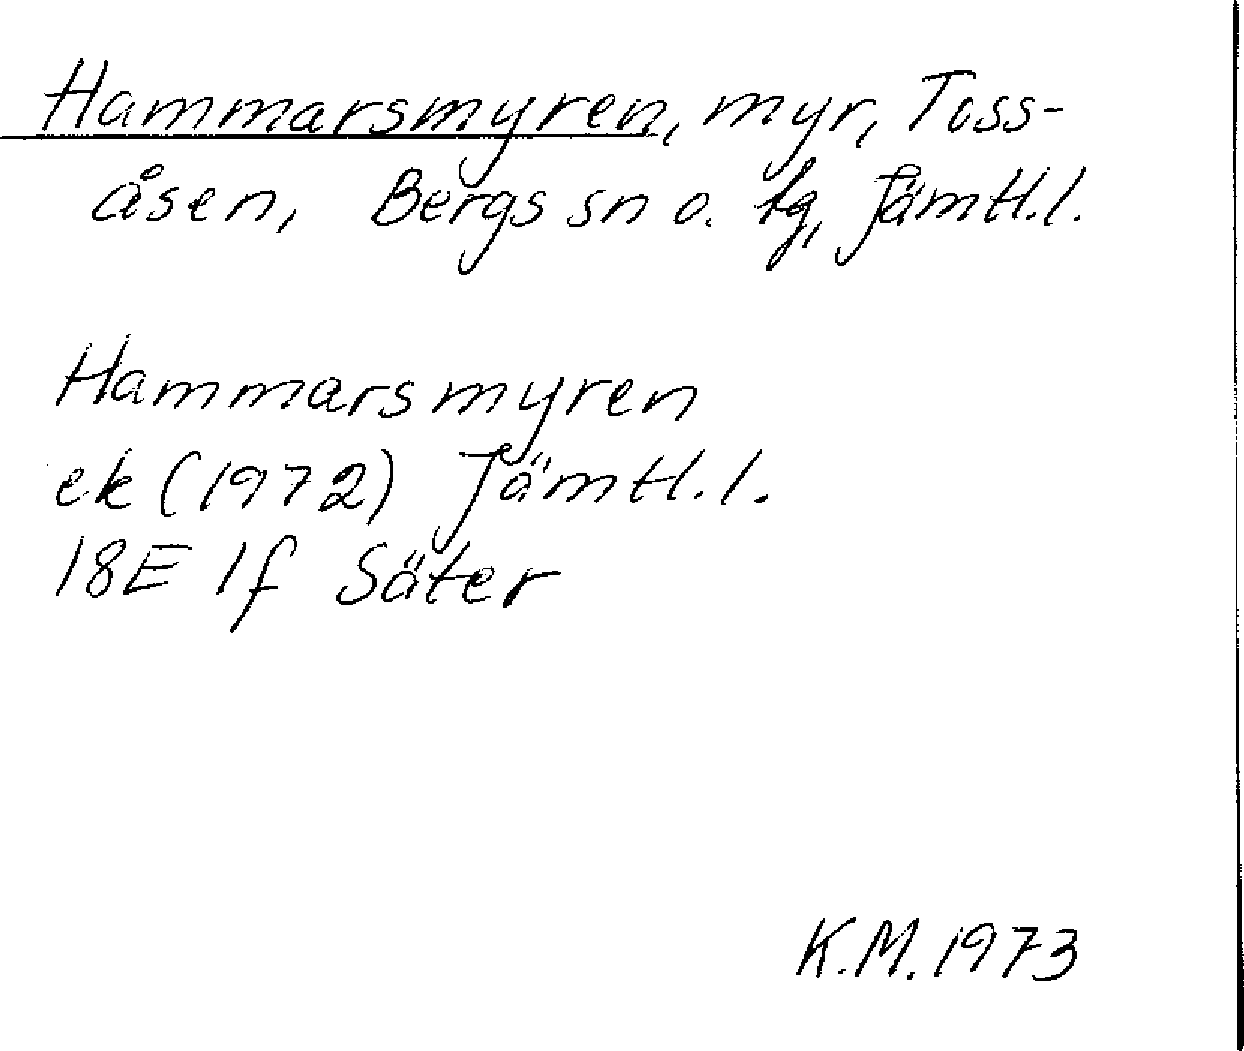 Hammarsmyren, myr, Toss-
åsen, Bergs sn o. tg, Jämtl.l.
Hammarsmyren
ek (1972) Jämtl.l.
18E 1f Säter
K.M. 1973